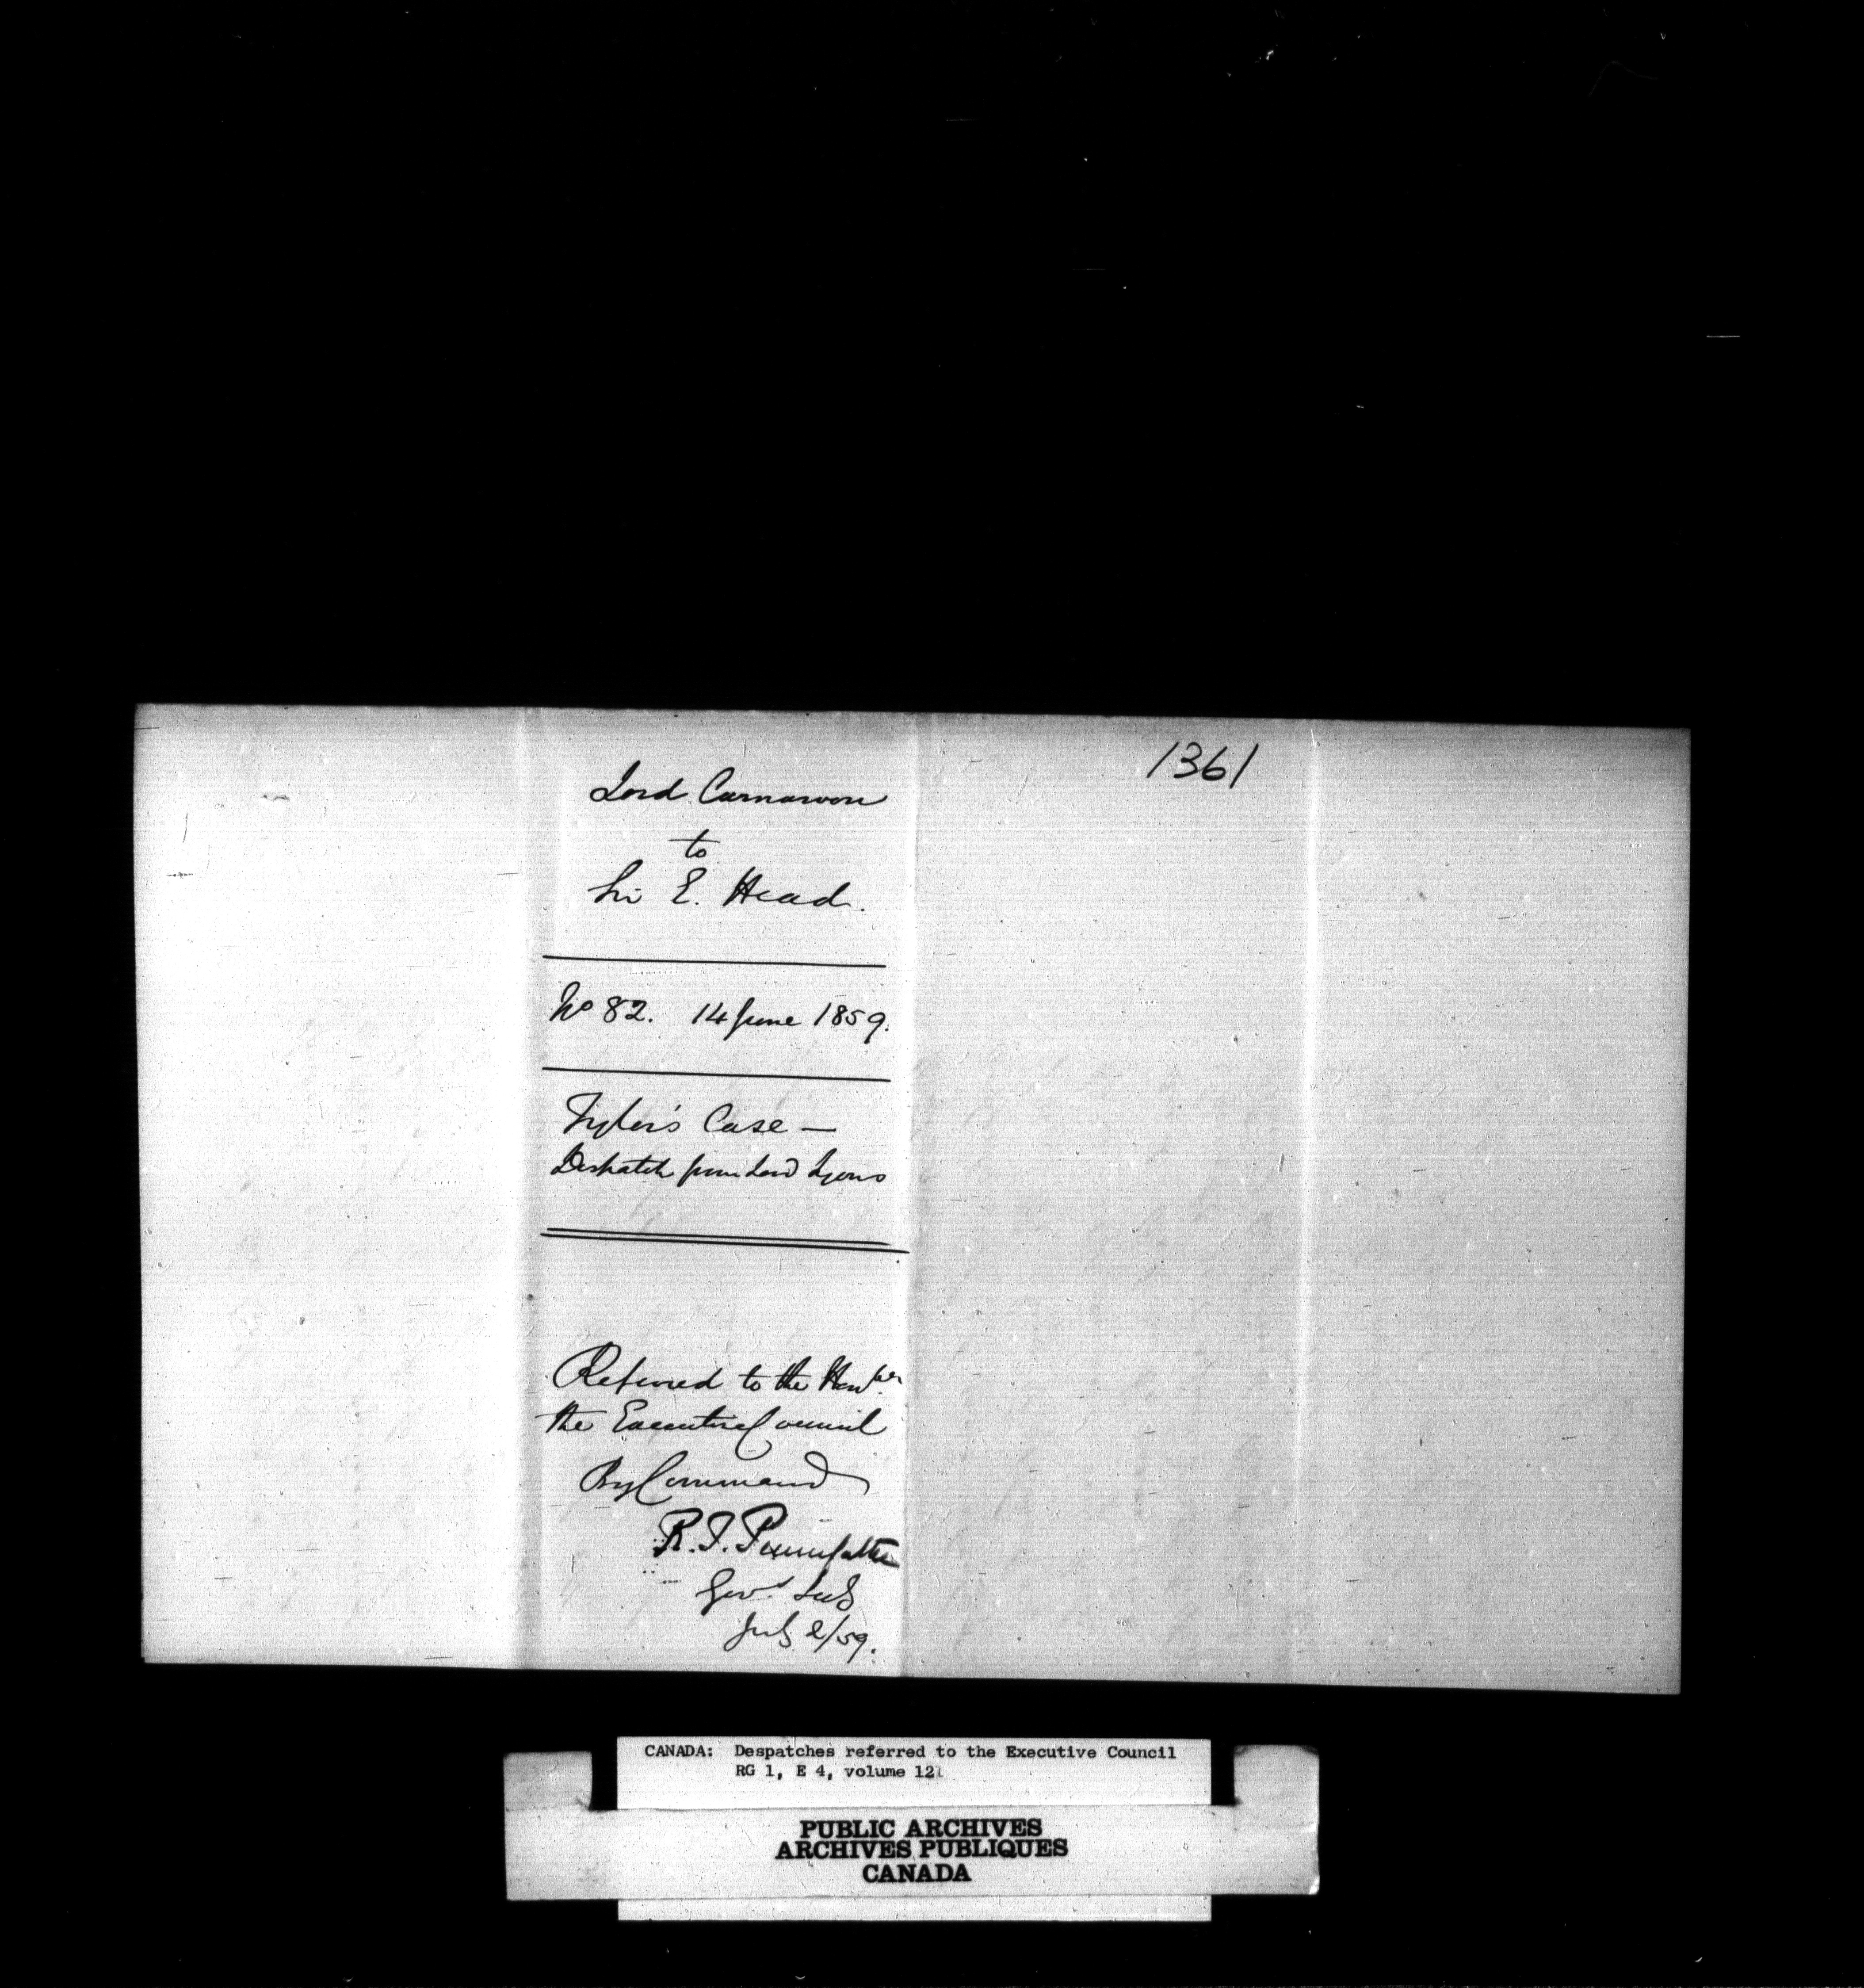 1361
Lord Carnarvon
to
Sir E. Head.
No 82. 14 June 1859.
Tyler's Case —
Despatch from Lord Lyons
Referred to the Honble
the Executive Council
By Command
R. T. Pennefather
Govr Sec
July 2/59.
CANADA: Despatches referred to the Executive Council
RG 1, E 4, volume 121
PUBLIC ARCHIVES
ARCHIVES PUBLIQUES
CANADA